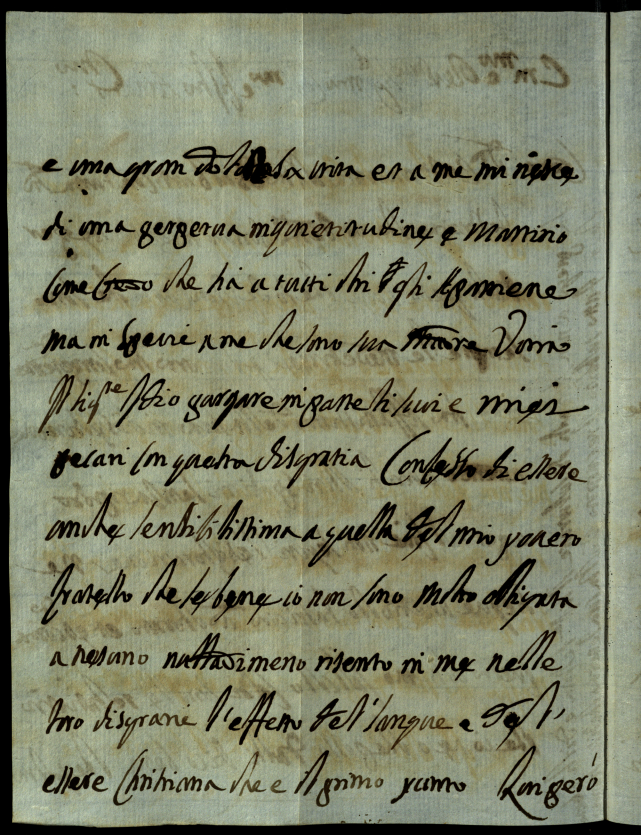 e una gran doglia sa vita et a me mi riesce
di una perpetua inquietitudine e Martirio
Come Credo che ha a tutti chi gli apartiene
ma in specie a me che sono sua Madre Vorria
Idio purgare in parte li suoi e miei
pecati con questa disgratia Confesso di essere
anche sensibilissima a quella del mio povero
fratello che se bene io non sono molto obligata
a nesuno nulladimeno risento in me nelle
loro disgratie l'effetto del sangue e del'
essere Christiana che e il primo punto